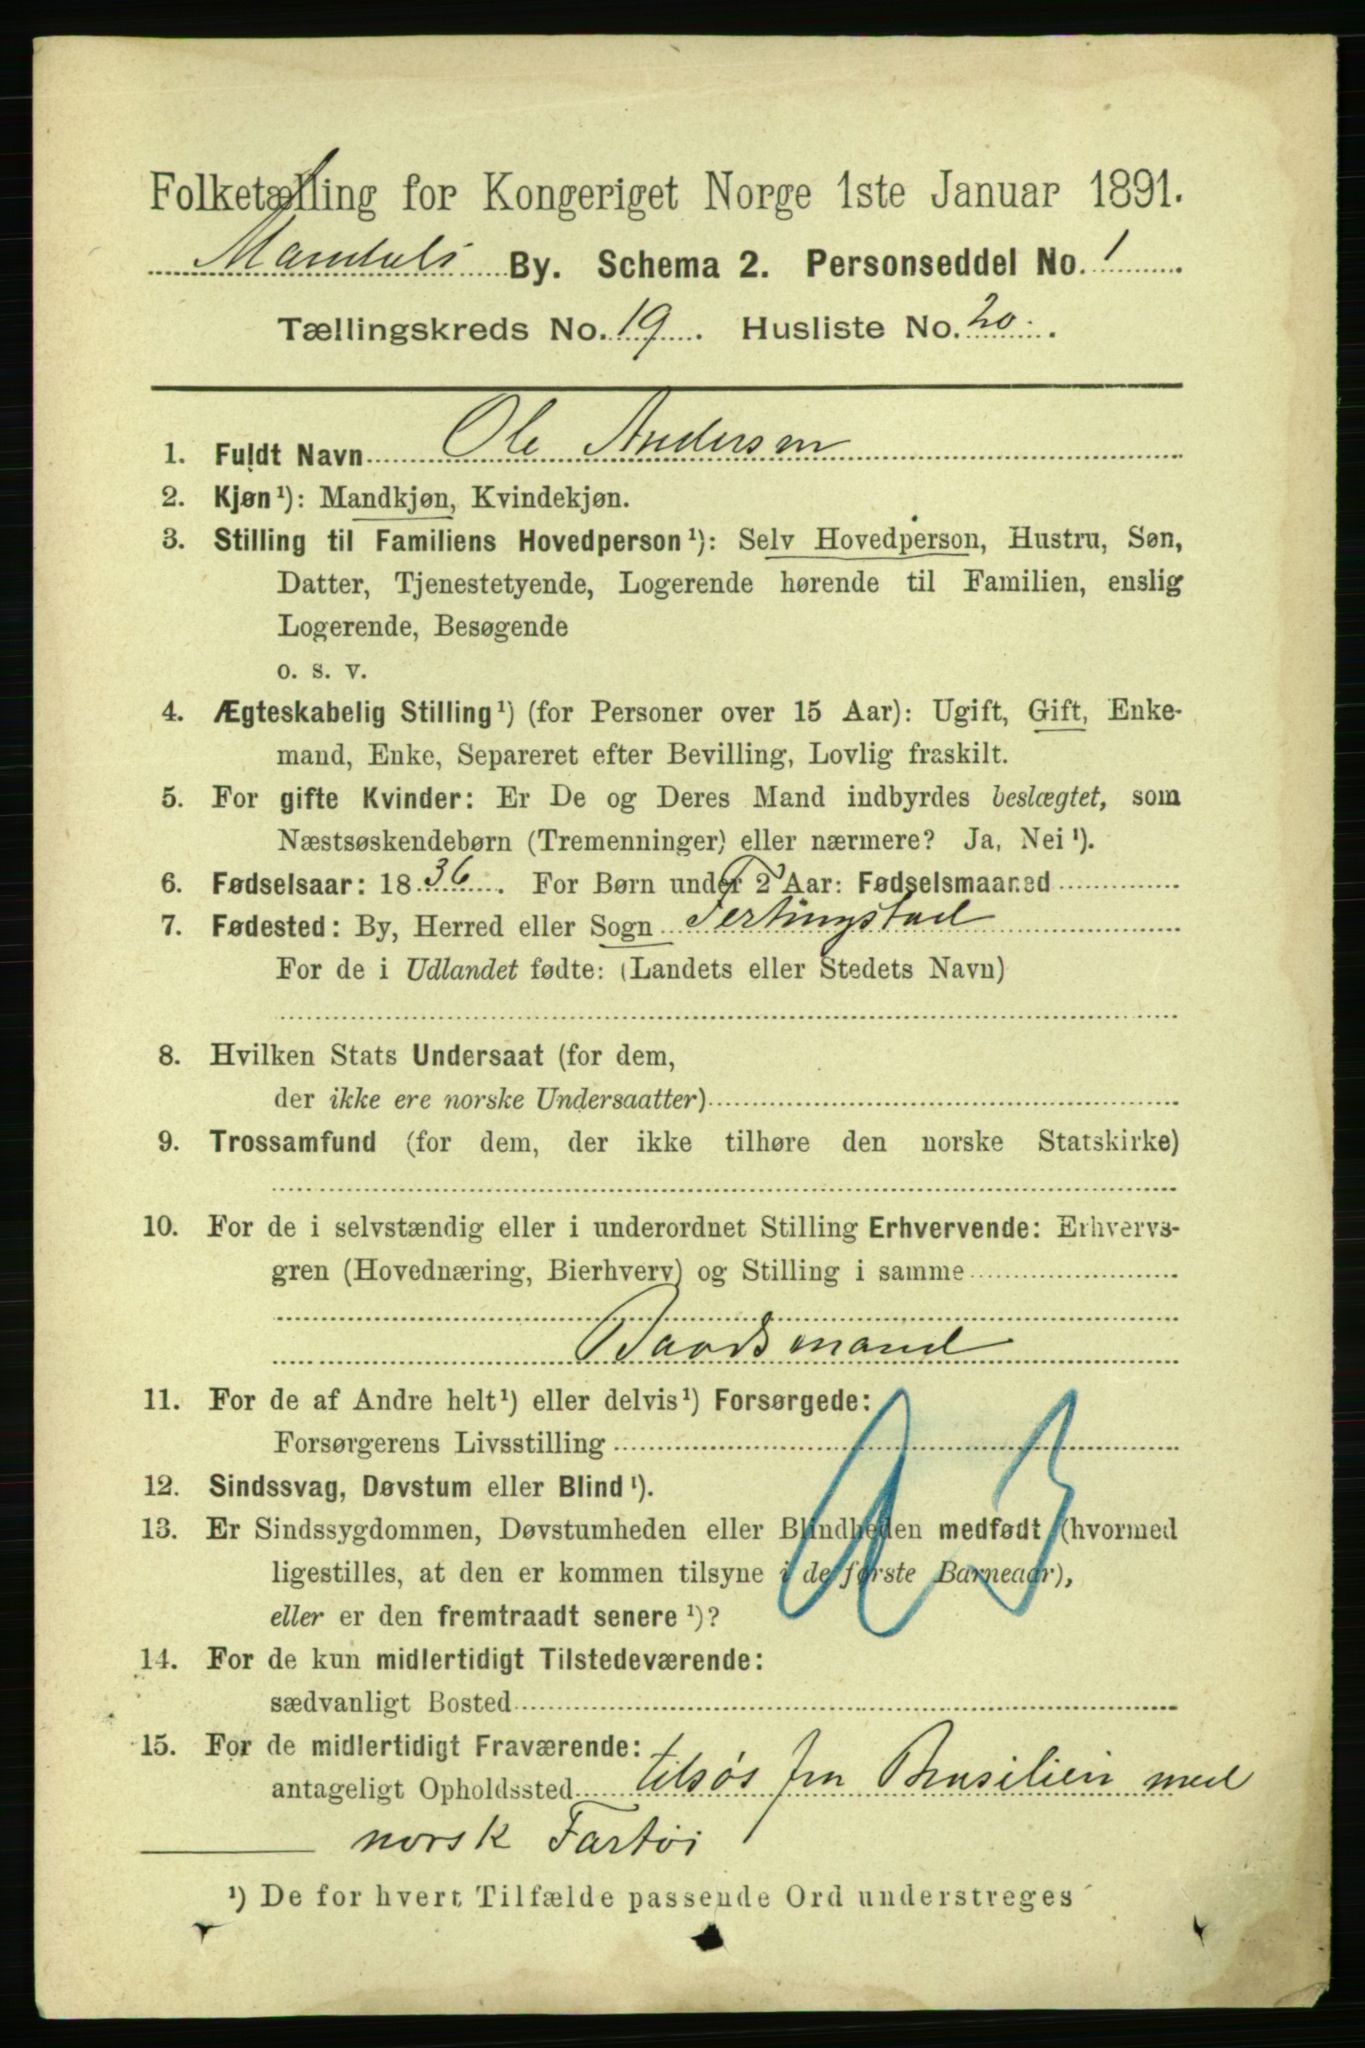 Folketælling for Kongeriget Norge 1ste Januar 1891.
Mandals By. Schema 2. Personseddel No. 1
Tællingskreds No. 19. Husliste No. 20.
1. Fuldt Navn Ole Andersen
2. Kjøn¹): Mandkjøn, Kvindekjøn.
3. Stilling til Familiens Hovedperson¹): Selv Hovedperson, Hustru, Søn,
Datter, Tjenestetyende, Logerende hørende til Familien, enslig
Logerende, Besøgende
o. s. v.
4. Ægteskabelig Stilling¹) (for Personer over 15 Aar): Ugift, Gift, Enke-
mand, Enke, Separeret efter Bevilling, Lovlig fraskilt.
5. For gifte Kvinder: Er De og Deres Mand indbyrdes beslægtet, som
Næstsøskendebørn (Tremenninger) eller nærmere? Ja, Nei¹).
6. Fødselsaar: 1836. For Børn under 2 Aar: Fødselsmaaned
7. Fødested: By, Herred eller Sogn
For de i Udlandet fødte: (Landets eller Stedets Navn)
8. Hvilken Stats Undersaat (for dem,
der ikke ere norske Undersaatter)
9. Trossamfund (for dem, der ikke tilhøre den norske Statskirke)
10. For de i selvstændig eller i underordnet Stilling Erhvervende: Erhvervs-
gren (Hovednæring, Bierhverv) og Stilling i samme
Baadsmand
11. For de af Andre helt¹) eller delvis¹) Forsørgede:
Forsørgerens Livsstilling
12. Sindssvag, Døvstum eller Blind¹).
13. Er Sindssygdommen, Døvstumheden eller Blindheden medfødt (hvormed
ligestilles, at den er kommen tilsyne i de første Barneaar),
eller er den fremtraadt senere¹)?
14. For de kun midlertidigt Tilstedeværende:
sædvanligt Bosted
15. For de midlertidigt Fraværende:
antageligt Opholdssted tilsøs fra Brasilien med
norsk Fartøi
¹) De for hvert Tilfælde passende Ord understreges